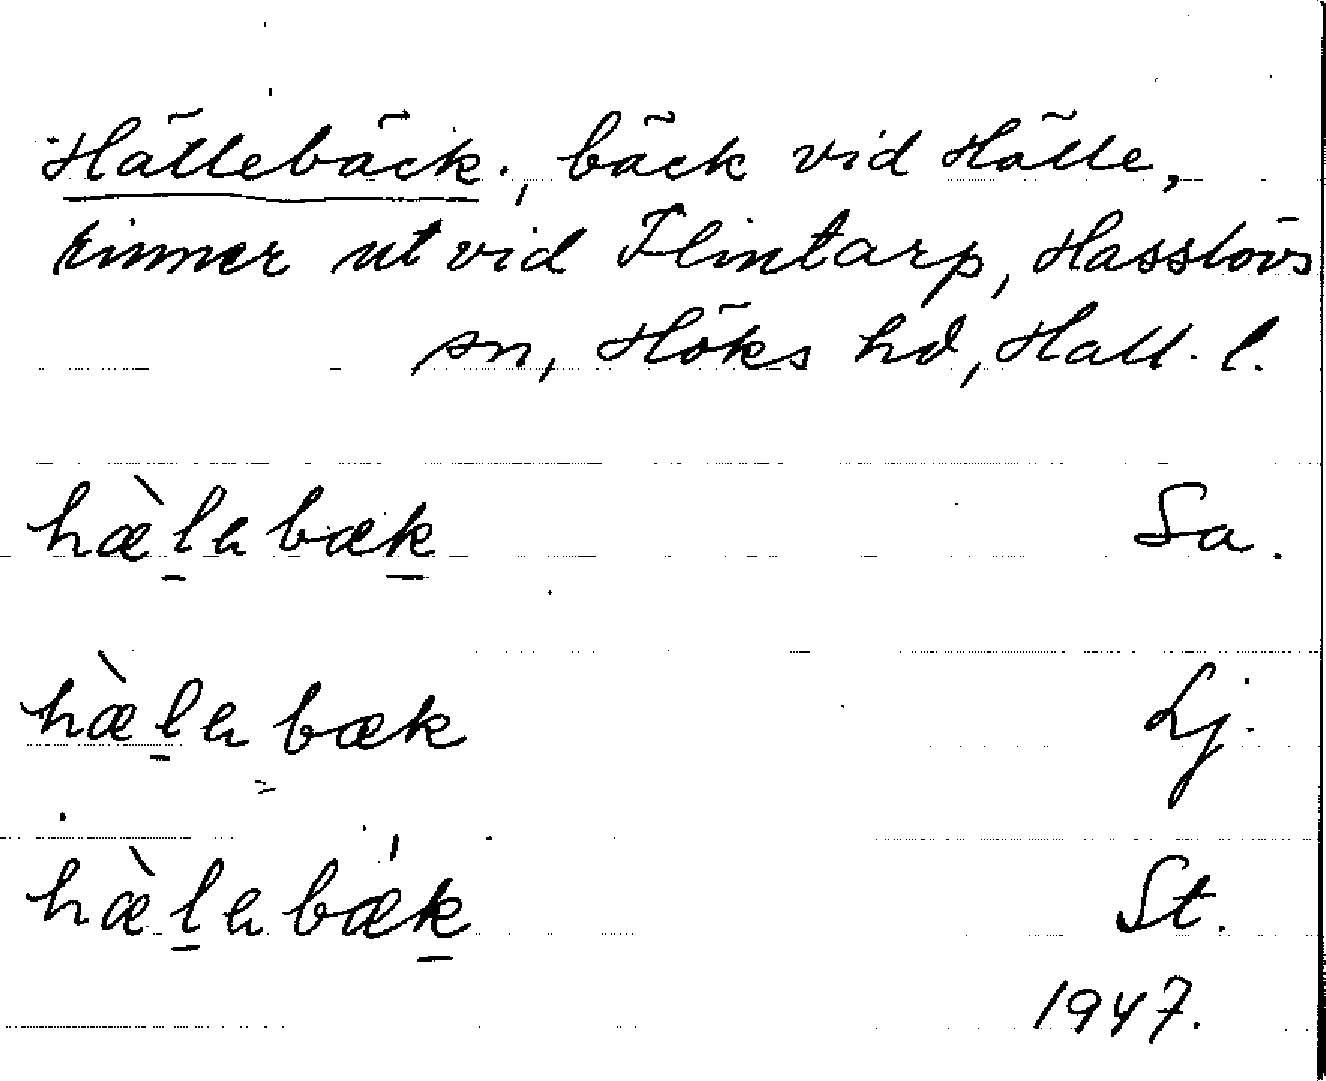 Hällebäck., bäck vid Hälle,
rinner ut vid Flintarp, Hasslövs
sn, Höks hd, Hall. l.
hæ̀l̠ɐbæk̠ Sa.
hæ̀l̠ɐbæk Lj.
hæ̀l̠ɐbæ̍k̠ St.
1947.